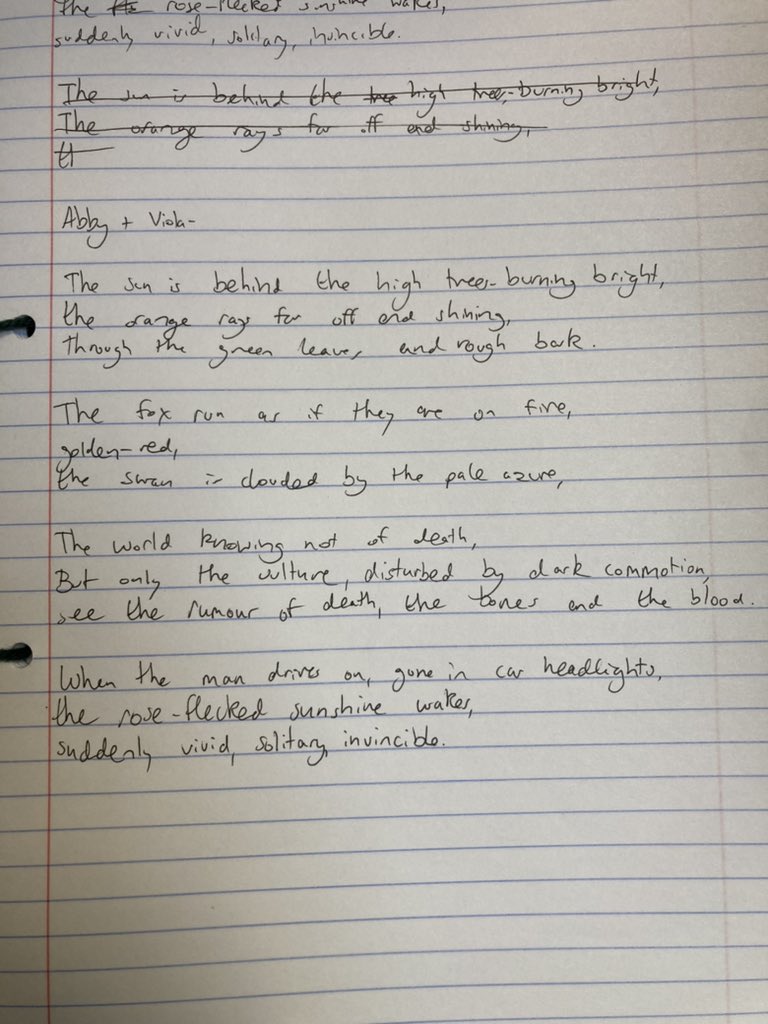 The rose-flecked sunshine wakes,
suddenly vivid, solitary, invincible.
The sun is behind the tree high trees-burning bright,
The orange rays far off and shining,
th
Abby + Viola-
The sun is behind the high trees-burning bright,
the orange rays far off and shining,
Through the green leaves and rough bark.
The fox run as if they are on fire,
golden-red,
the swan is clouded by the pale azure,
The world knowing not of death,
But only the vulture, disturbed by dark commotion,
see the rumour of death, the bones and the blood.
When the man drives on, gone in car headlights,
the rose-flecked sunshine wakes,
suddenly vivid, solitary, invincible.